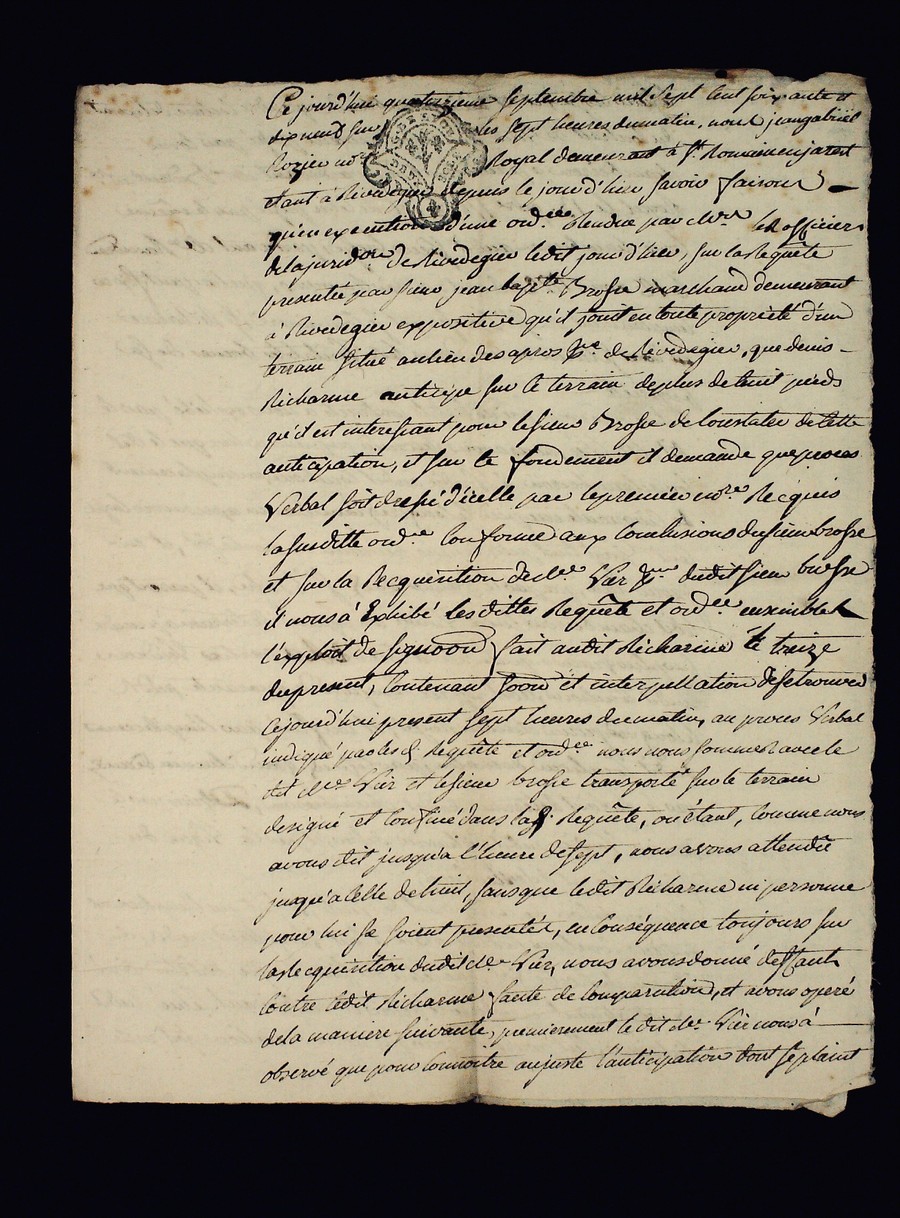 Ce jourd'hui quatorzieme Septembre mil Sept Cent Soixante et
dix neuf sur les sept heures du matin, nous jean gabriel
Rozier no.re Royal demeurant à St. Romain en jarest
etant à Rivedegier depuis le jour d'hier savoir faisons
qu'en execution d'une ord.ce Rendue par M.rs les officiers
de la jurid.on de Rivedegier ledit jour d'hier, sur la Requête
presentée par sieur jean bap.te Brosse marchand demeurant
à Rivedegier expositive qu'il jouit en toute propriété d'un
terrain situé au lieu des apros P.sse de Rivedegier, que denis
Richarme anticipe sur le terrain de plus de huit pieds
qu'il est interessant pour le sieur Brosse de Constater de Cette
anticipation, et sur le fondement il demande que proces
Verbal soit dressé d'icelle par le premier no.re Recquis
la susditte ord.ce Conforme aux Conclusions du sieur brosse
et sur la Recquisition de M.e Vier dudit sieur brosse
il nous à Exhibé les dittes Requête et ord.ce ensemble
l'exploit de fait audit Richarme le treize
du present, Contenant et interpellation de se trouver
cejourd'hui present sept heures du matin, au proces Verbal
indiqué par les d. Requête et ord.ce nous nous sommes avec le
dit M.e Vier et le sieur brosse transporté sur le terrain
designé et Confiné dans lad. Requête, ou étant, Comme nous
avons dit jusqu'a l'heure de sept, nous avons attendu
jusqu'a Celle de huit, sans que ledit Richarme ni personne
pour lui se soient presentés, en Conséquence toujours sur
la Recquisition dudit M.e Vier, nous avons donné deffaut
Contre ledit Richarme faute de Comparution, et avons operé
de la maniere suivante, premierement ledit M.e Vier nous à
observé que pour Connoitre au juste l'anticipation dont se plaint